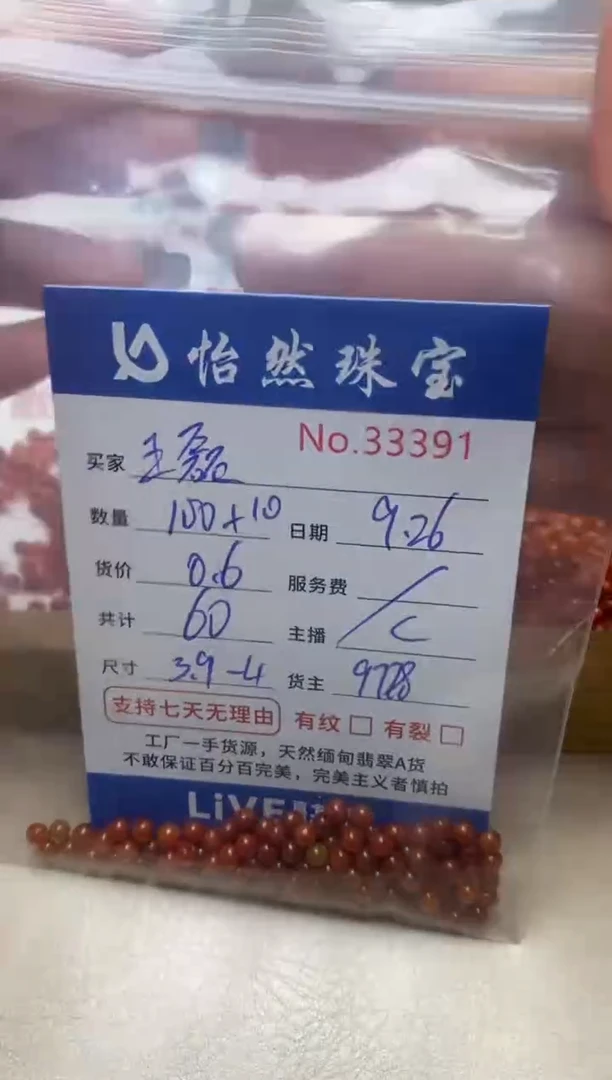 怡然珠宝
No.33391
买家 王磊
数量 100+10 日期 9.26
货价 0.6 服务费 /
共计 60 主播 C
尺寸 3.9-4 货主 9728
支持七天无理由 有纹 □ 有裂 □
工厂一手货源，天然缅甸翡翠A货
不敢保证百分百完美，完美主义者慎拍
LiVE